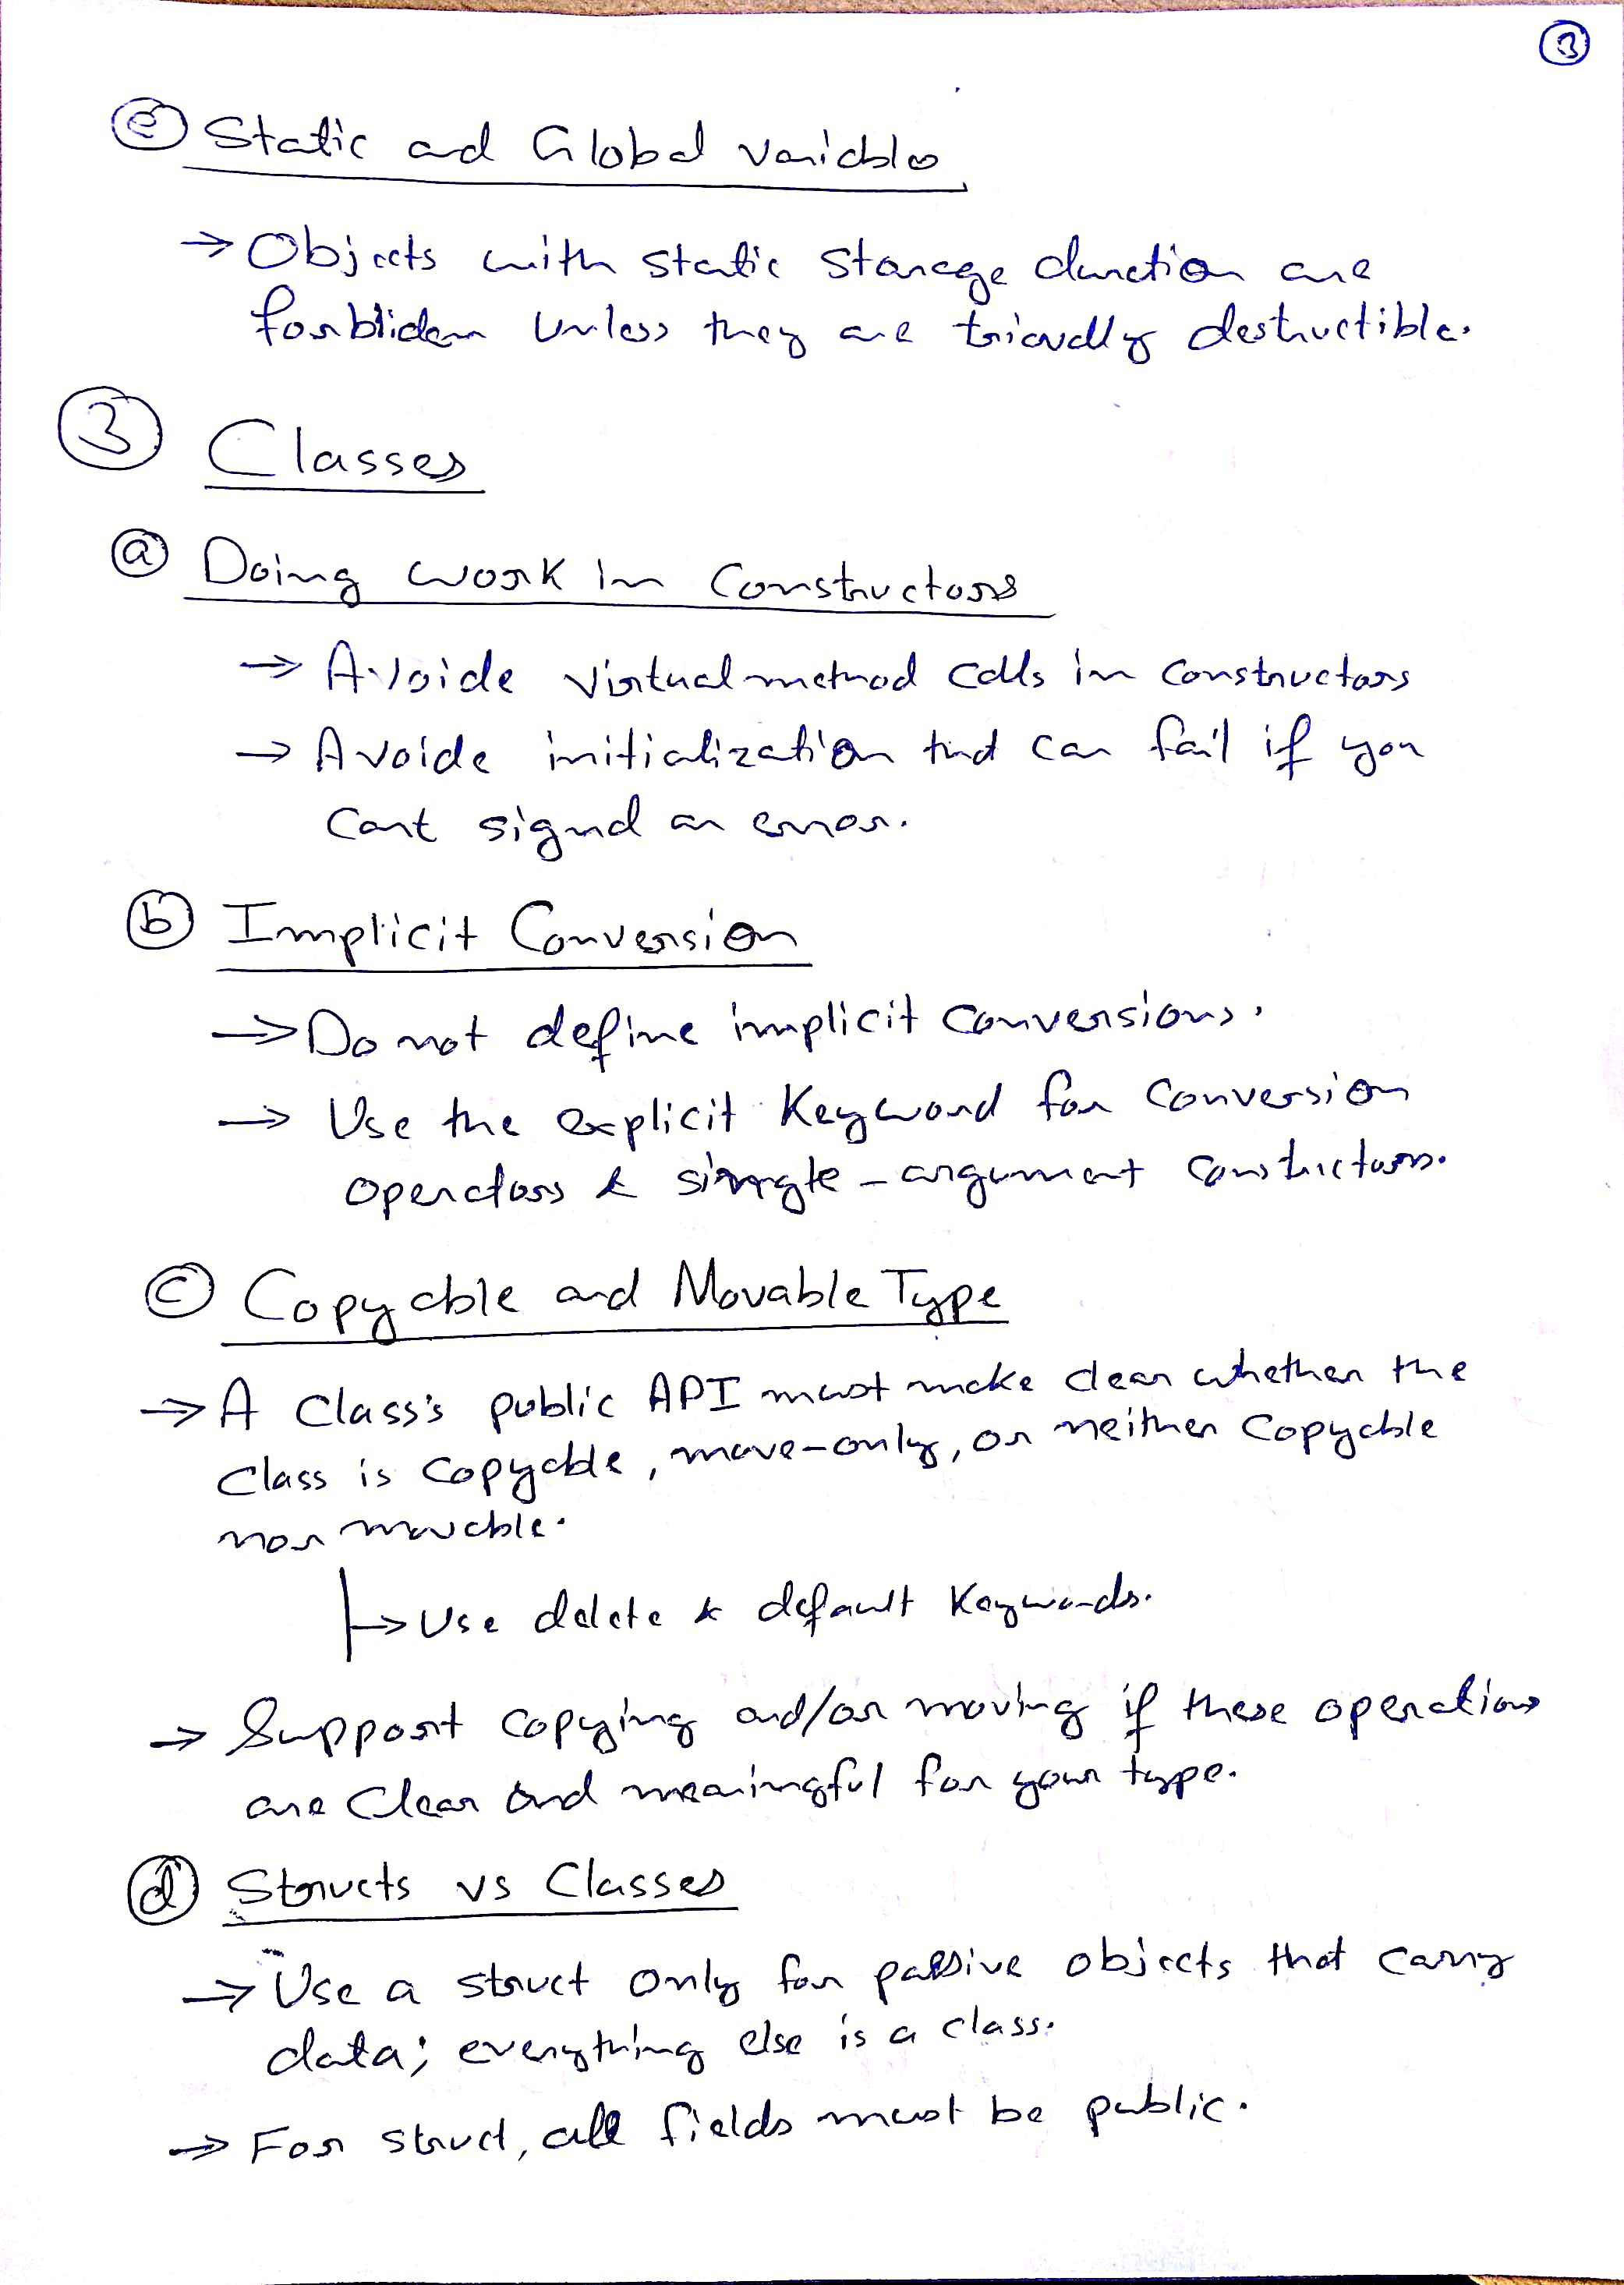 3
e Static and Global variables
→ Objects with static storage duration are
forbliden Unless they are trivally destructible.
3 Classes
a Doing work in Constructors
→ Avoide virtual method calls in constructors
→ Avoide initialization that can fail if you
cant signal an error.
b Implicit Conversion
→ Do not define implicit conversions.
→ Use the explicit Keyword for conversion
operators & single-argument constructors.
c Copyable and Movable Type
→ A Class's public API must make clear whether the
Class is copyable, move-only, or neither copyable
nor movable.
→ Use delete & default Keywords.
→ Support copying and/or moving if these operations
are Clear and meaningful for your type.
d Structs vs Classes
→ Use a struct only for passive objects that carry
data; everything else is a class.
→ For struct, all fields must be public.